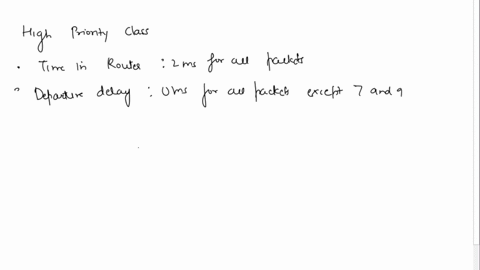 High Priority Class
• Time in Router : 2ms for all packets
• Departure delay : 0ms for all packets except 7 and 9